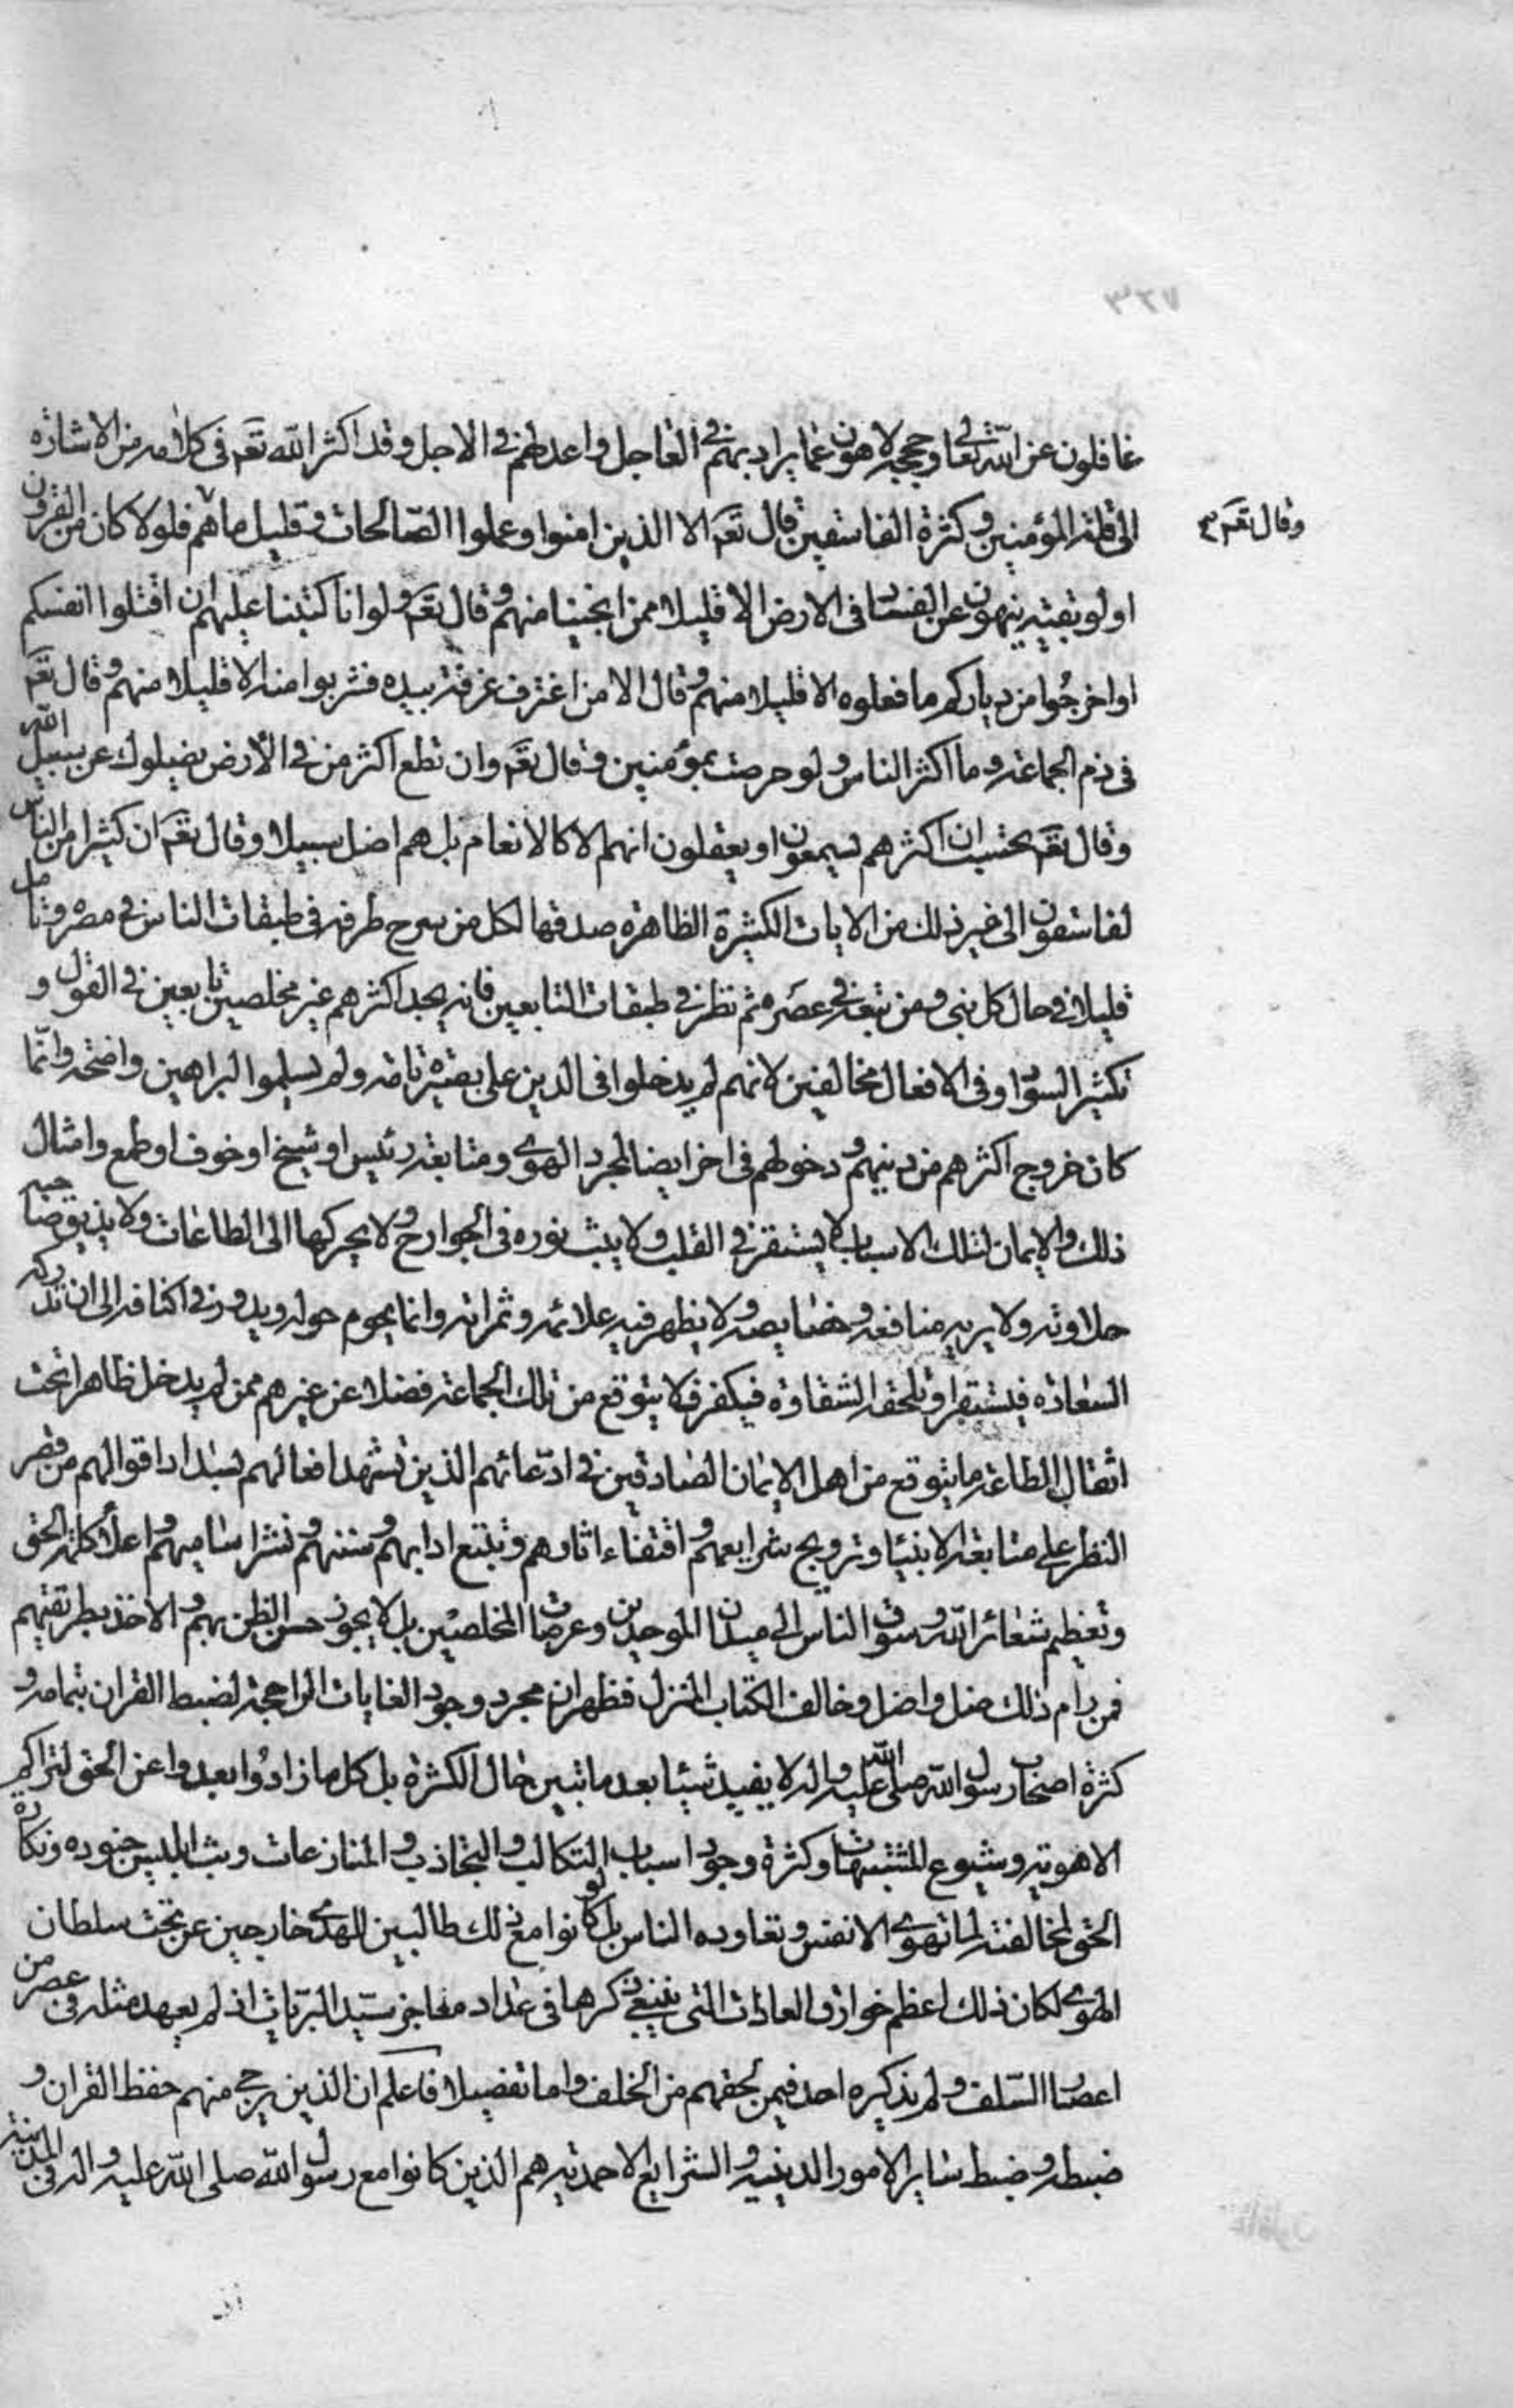 غافلون عن الله تعالى وحججه لاهون عما يراد بهم في العاجل واعد لهم في الاجل وقد اكثر الله تعَ في كلامه من الاشارة
الى قلة المؤمنين وكثرة الفاسقين قال تعَ الا الذين امنوا وعملوا الصالحات وقليل ما هم فلولا كان من القرون
وقال تعَ
اولو بقية ينهون عن الفساد في الارض الا قليلا ممن انجينا منهم وقال تعَ ولو انا كتبنا عليهم ان اقتلوا انفسكم
او اخرجوا من دياركم ما فعلوه الا قليلا منهم وقال الا من اغترف غرفة بيده فشربوا منه الا قليلا منهم وقال تعَ
في ذم الجماعة وما اكثر الناس ولو حرصت بمؤمنين وقال تعَ وان تطع اكثر من في الأرض يضلوك عن سبيل الله
وقال تعَ تحسب ان اكثرهم يسمعون او يعقلون انهم الا كالانعام بل هم اضل سبيلا وقال تعَ ان كثيرا من الناس
لفاسقون الى غير ذلك من الايات الكثيرة الظاهرة صدقها لكل من سرح طرفه في طبقات الناس في عصره وتامل
قليلا في حال كل نبي ومن تبعه في عصره ثم نظر في طبقات التابعين فانه يجد اكثرهم غير مخلصين تابعين في القول و
تكثير السواد وفي الافعال مخالفين لانهم لم يدخلوا في الدين على بصيرة تامة ولم يسلموا لبراهين واضحة وانما
كان خروج اكثرهم من دينهم ودخولهم في اخر ايضا لمجرد الهوى ومتابعة رئيس او شيخ او خوف او طمع وامثال
ذلك والايمان لتلك الاسباب لا يستقر في القلب ولا يبث نوره في الجوارح ولا يحركها الى الطاعات ولا يذيق صاحبه
حلاوته ولا يريه منافعه وخصايصه ولا يظهر فيه علائمه وثمراته وانما يحوم حوله ويدور في اكنافه الى ان تدركه
السعادة فيستقر او تلحقه الشقاوة فيكفر فلا يتوقع من تلك الجماعة فضلا عن غيرهم ممن لم يدخل ظاهرا تحت
اثقال الطاعة ما يتوقع من اهل الايمان الصادقين في ادعائهم الذين تشهد افعالهم بسداد اقوالهم من قصر
النظر على متابعة الانبياء وترويج شرايعهم واقتفاء اثارهم وتتبع ادابهم وسننهم ونشر اساميهم واعلاء كلمة الحق
وتعظيم شعائر الله وسوق الناس الى ميدان الموحدين وعرصات المخلصين بل لا يجوز حسن الظن بهم والاخذ بطريقتهم
فمن رام ذلك ضل واضل وخالف الكتاب المنزل فظهر ان مجرد وجود الغايات الراجحة لضبط القران بتمامه و
كثرة اصحاب رسول الله صلى الله عليه واله لا يفيد شيئا بعد ما تبين حال الكثرة بل كل ما زادوا بعدوا عن الحق لتراكم
الاهوية وشيوع المشتبهات وكثرة وجود اسباب التكالب والتجاذب والمنازعات وبث ابليس جنوده ونكارة
الحق لمخالفته لما تهوى الانفس وتعاوده الناس بل لو كانوا مع ذلك طالبين للهدى خارجين عن تحت سلطان
الهوى لكان ذلك اعظم خوارق العادات التي ينبغي ذكرها في عداد معاجز سيد البريات اذ لم يعهد مثله في عصر من
اعصار السلف ولم يذكره احد فيمن لحقهم من الخلف واما تفصيلا فاعلم ان الذين يرجى منهم حفظ القران و
ضبطه وضبط ساير الامور الدينية والشرايع الاحمدية هم الذين كانوا مع رسول الله صلى الله عليه واله في المدينة